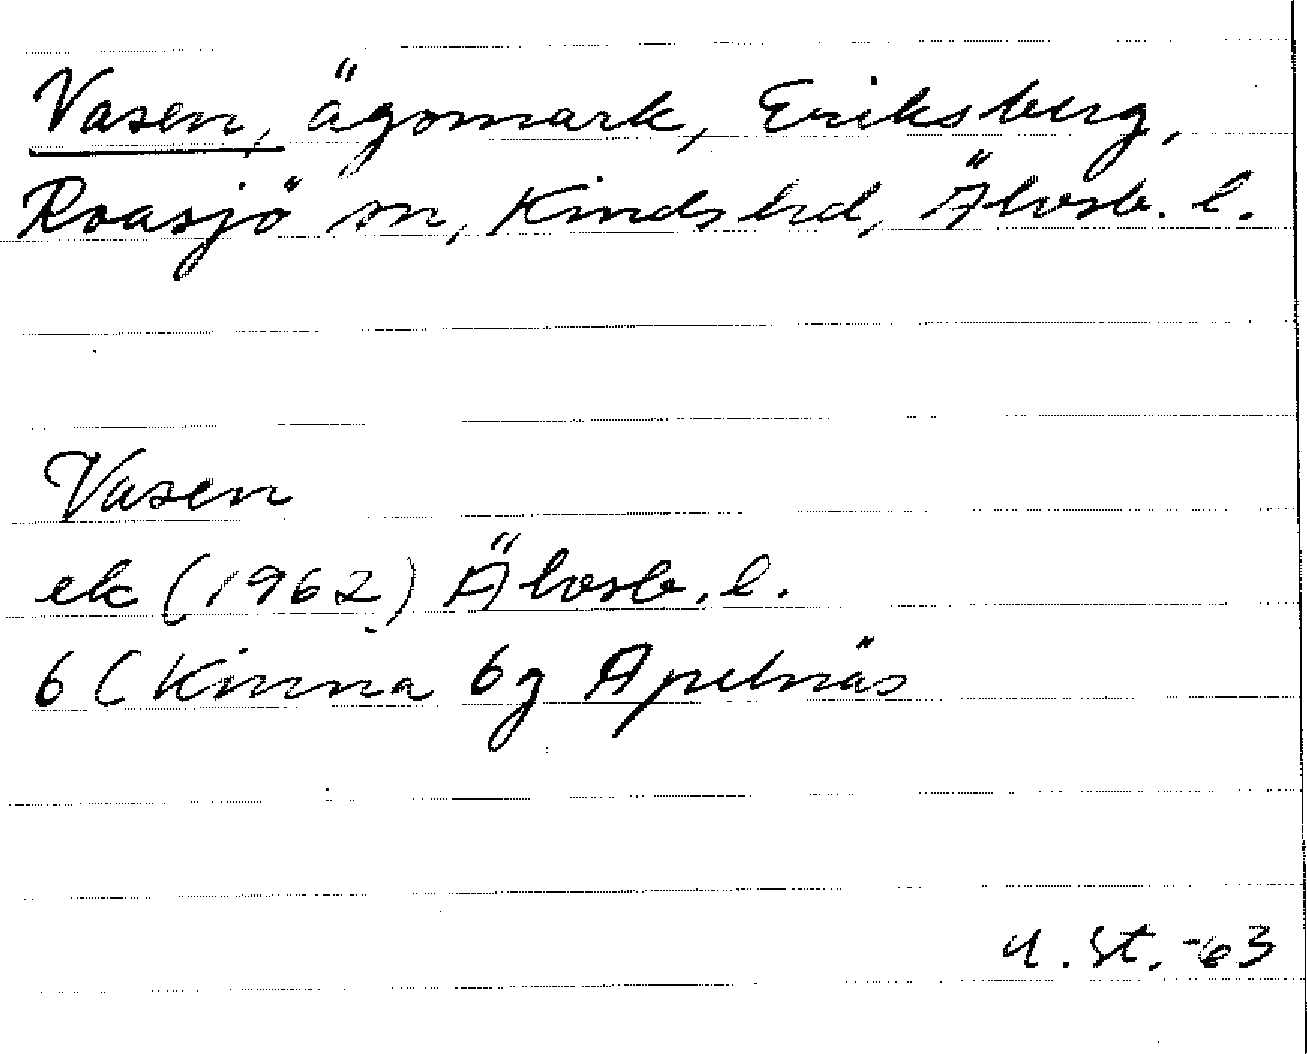 Vasen, ägomark, Eriksberg,
Roasjö sn, Kinds hd, Älvsb. l.
Vasen
ek (1962) Älvsb. l.
6 C Kinna 6g Apelnäs
U. St. -63